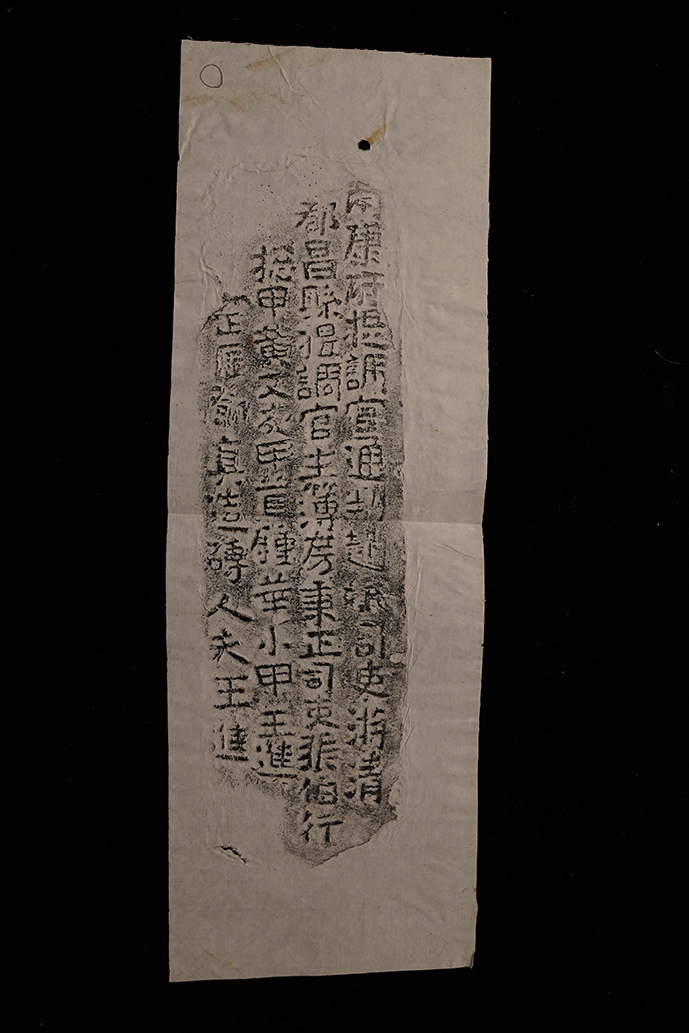 南康府提調官通判趙斌司吏游清
都昌縣提調官主簿房秉正司吏張伯行
揔甲黄文 甲首 小甲王進
正匠 真造磚人夫王進